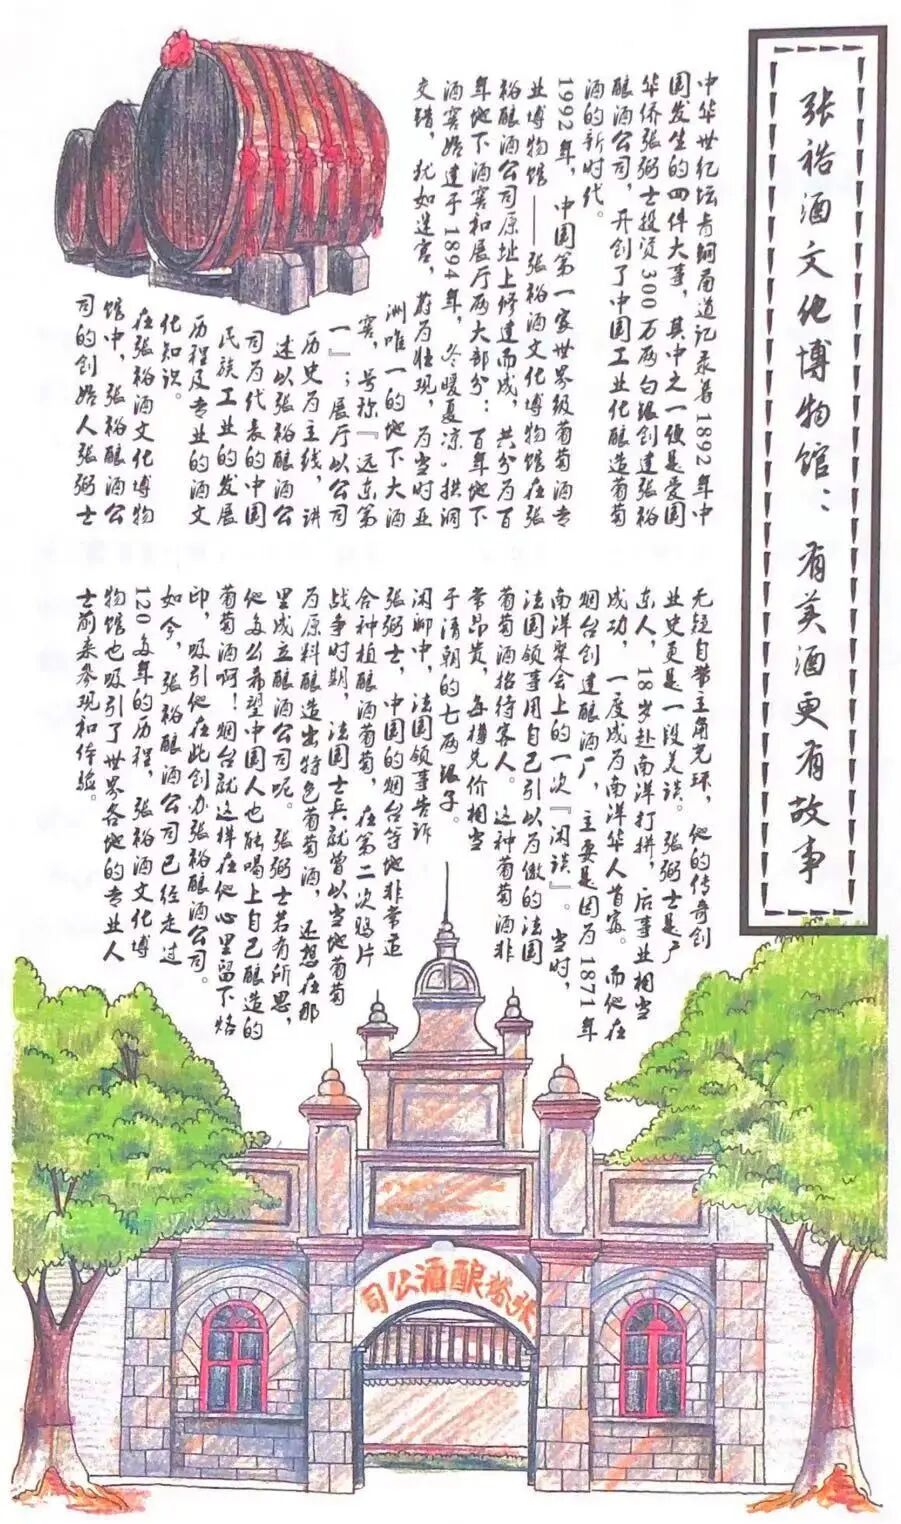 张裕酒文化博物馆：有美酒更有故事
中华世纪坛青铜甬道记录着1892年中
国发生的四件大事，其中之一便是爱国
华侨张弼士投资300万两白银创建张裕
酿酒公司，开创了中国工业化酿造葡萄
酒的新时代。
1992年，中国第一家世界级葡萄酒专
业博物馆——张裕酒文化博物馆在张
裕酿酒公司原址上修建而成，共分为百
年地下酒窖和展厅两大部分：百年地下
酒窖始建于1894年，冬暖夏凉。拱洞
交错，犹如迷宫，蔚为壮观，为当时亚
洲唯一的地下大酒
窖，号称『远东第
一』；展厅以公司
历史为主线，讲
述以张裕酿酒公
司为代表的中国
民族工业的发展
历程及专业的酒文
化知识。
在张裕酒文化博物
馆中，张裕酿酒公
司的创始人张弼士
无疑自带主角光环，他的传奇创
业史更是一段美谈。张弼士是广
东人，18岁赴南洋打拼，后事业相当
成功，一度成为南洋华人首富。而他在
烟台创建酿酒厂，主要是因为1871年
南洋宴会上的一次『闲谈』。当时，
法国领事用自己引以为傲的法国
葡萄酒招待客人。这种葡萄酒非
常昂贵，每樽兑价相当
于清朝的七两银子。
闲聊中，法国领事告诉
张弼士，中国的烟台等地非常适
合种植酿酒葡萄，在第二次鸦片
战争时期，法国士兵就曾以当地葡萄
为原料酿造出特色葡萄酒，还想在那
里成立酿酒公司呢。张弼士若有所思，
他多么希望中国人也能喝上自己酿造的
葡萄酒啊！烟台就这样在他心里留下烙
印，吸引他在此创办张裕酿酒公司。
如今，张裕酿酒公司已经走过
120多年的历程，张裕酒文化博
物馆也吸引了世界各地的专业人
士前来参观和体验。
司公酒酿裕张